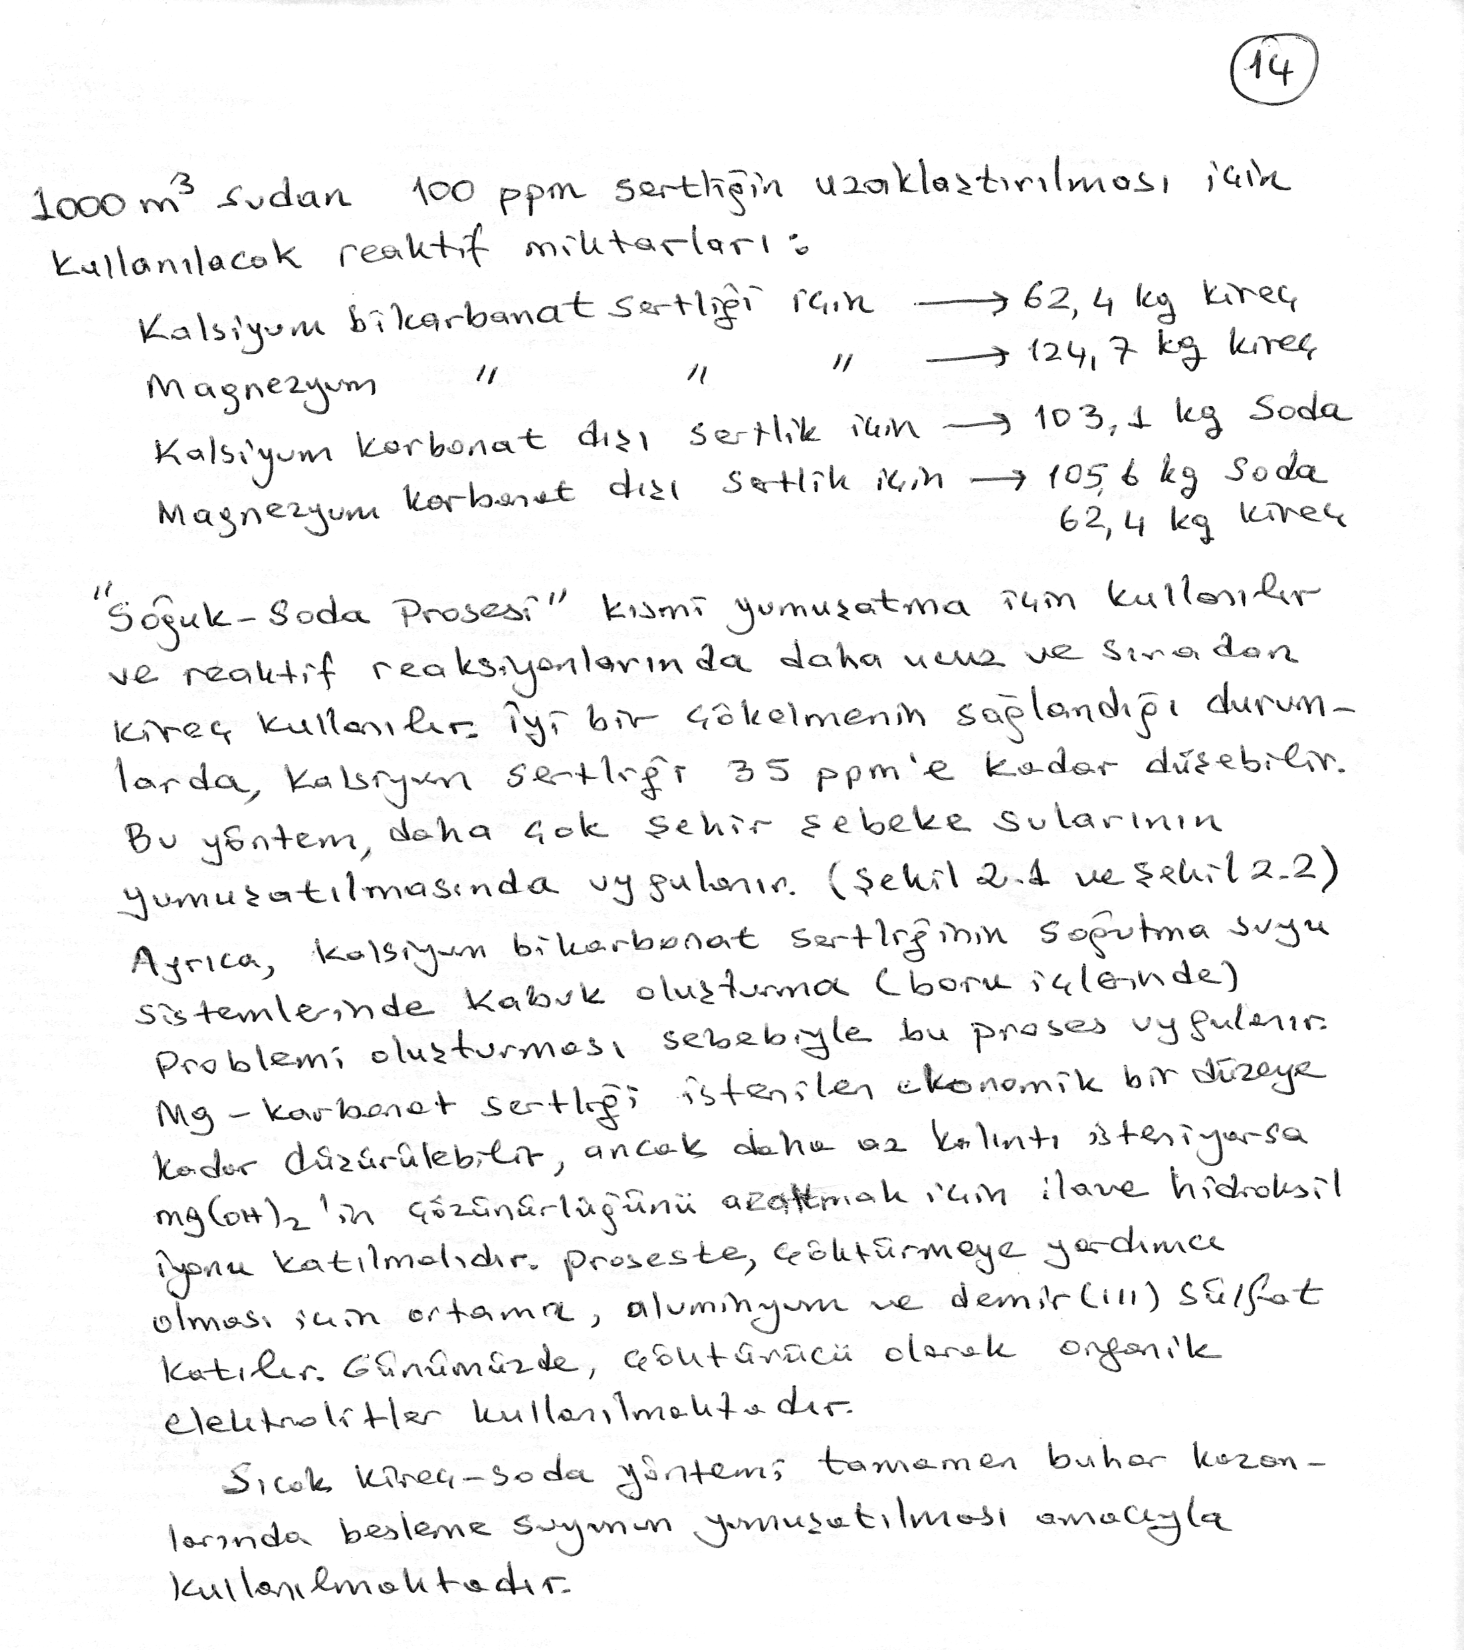 14
1000 m³ sudan 100 ppm sertliğin uzaklaştırılması için
kullanılacak reaktif miktarları:
Kalsiyum bikarbanat sertliği için → 62,4 kg kireç
Magnezyum " " " → 124,7 kg kireç
Kalsiyum karbonat dışı sertlik için → 103,1 kg soda
Magnezyum karbonat dışı sertlik için → 105,6 kg soda
62,4 kg kireç
"Soğuk-Soda Prosesi" kısmi yumuşatma için kullanılır
ve reaktif reaksiyonlarında daha ucuz ve sıradan
kireç kullanılır. İyi bir çökelmenin sağlandığı durum-
larda, kalsiyum sertliği 35 ppm'e kadar düşebilir.
Bu yöntem, daha çok şehir şebeke sularının
yumuşatılmasında uygulanır. (Şekil 2.1 ve Şekil 2.2)
Ayrıca, kalsiyum bikarbonat sertliğinin soğutma suyu
sistemlerinde kabuk oluşturma (boru içlerinde)
problemi oluşturması sebebiyle bu proses uygulanır.
Mg-karbonat sertliği istenilen ekonomik bir düzeye
kadar düzürülebilir, ancak daha az kalıntı isteniyorsa
mg(OH)₂'in çözünürlüğünü azaltmak için ilave hidroksil
iyonu katılmalıdır. Proseste, çöktürmeye yardımcı
olması için ortama, aluminyum ve demir(III) sülfat
katılır. Günümüzde, çöktürücü olarak organik
elektrolitler kullanılmaktadır.
Sıcak kireç-soda yöntemi tamamen buhar kazan-
larında besleme suyunun yumuşatılması amacıyla
kullanılmaktadır.